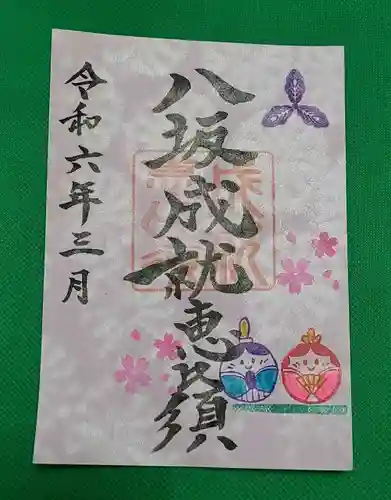 八坂成就恵比須
令和六年三月